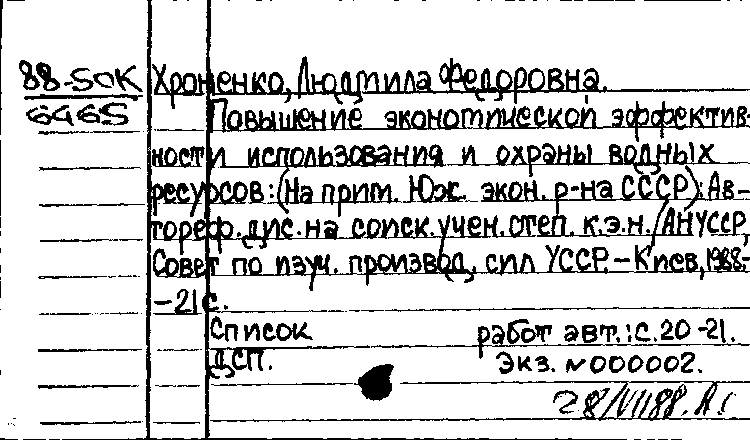 88-50К Хроненко, Людмила Федоровна.
6465 Повышение экономической эффектив-
ности использования и охраны водных
ресурсов: (На прим. Юж. экон. р-на СССР): Ав-
тореф. дис. на соиск. учен. степ. к.э.н. /АН УССР,
Совет по изуч. производ. сил УССР. – Киев, 1988.-
-21 с.
Список работ авт.: с. 20-21.
ДСП. Экз. №000002.
28/VII88.